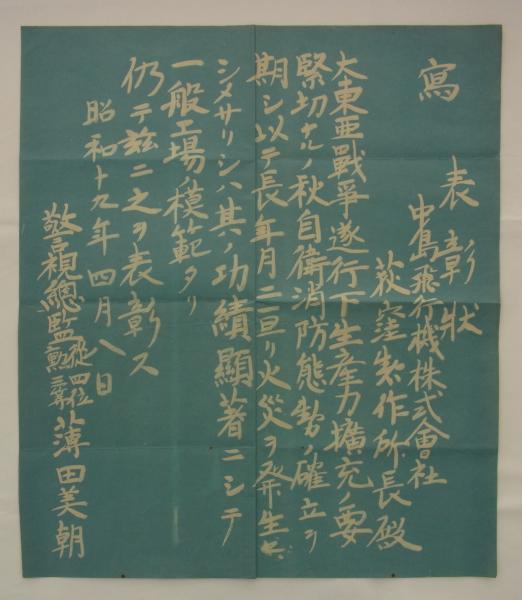 寫
表彰状
中島飛行機株式會社
荻窪製作所長殿
大東亜戰爭遂行下生産力擴充ノ要
緊切ナルノ秋自衛消防態勢ノ確立ヲ
期シ以テ長年月ニ亘リ火災ヲ発生セ
シメサリシハ其ノ功績顯著ニシテ
一般工場ノ模範タリ
仍テ茲ニ之ヲ表彰ス
昭和十九年四月八日
警視總監從四位勲三等薄田美朝